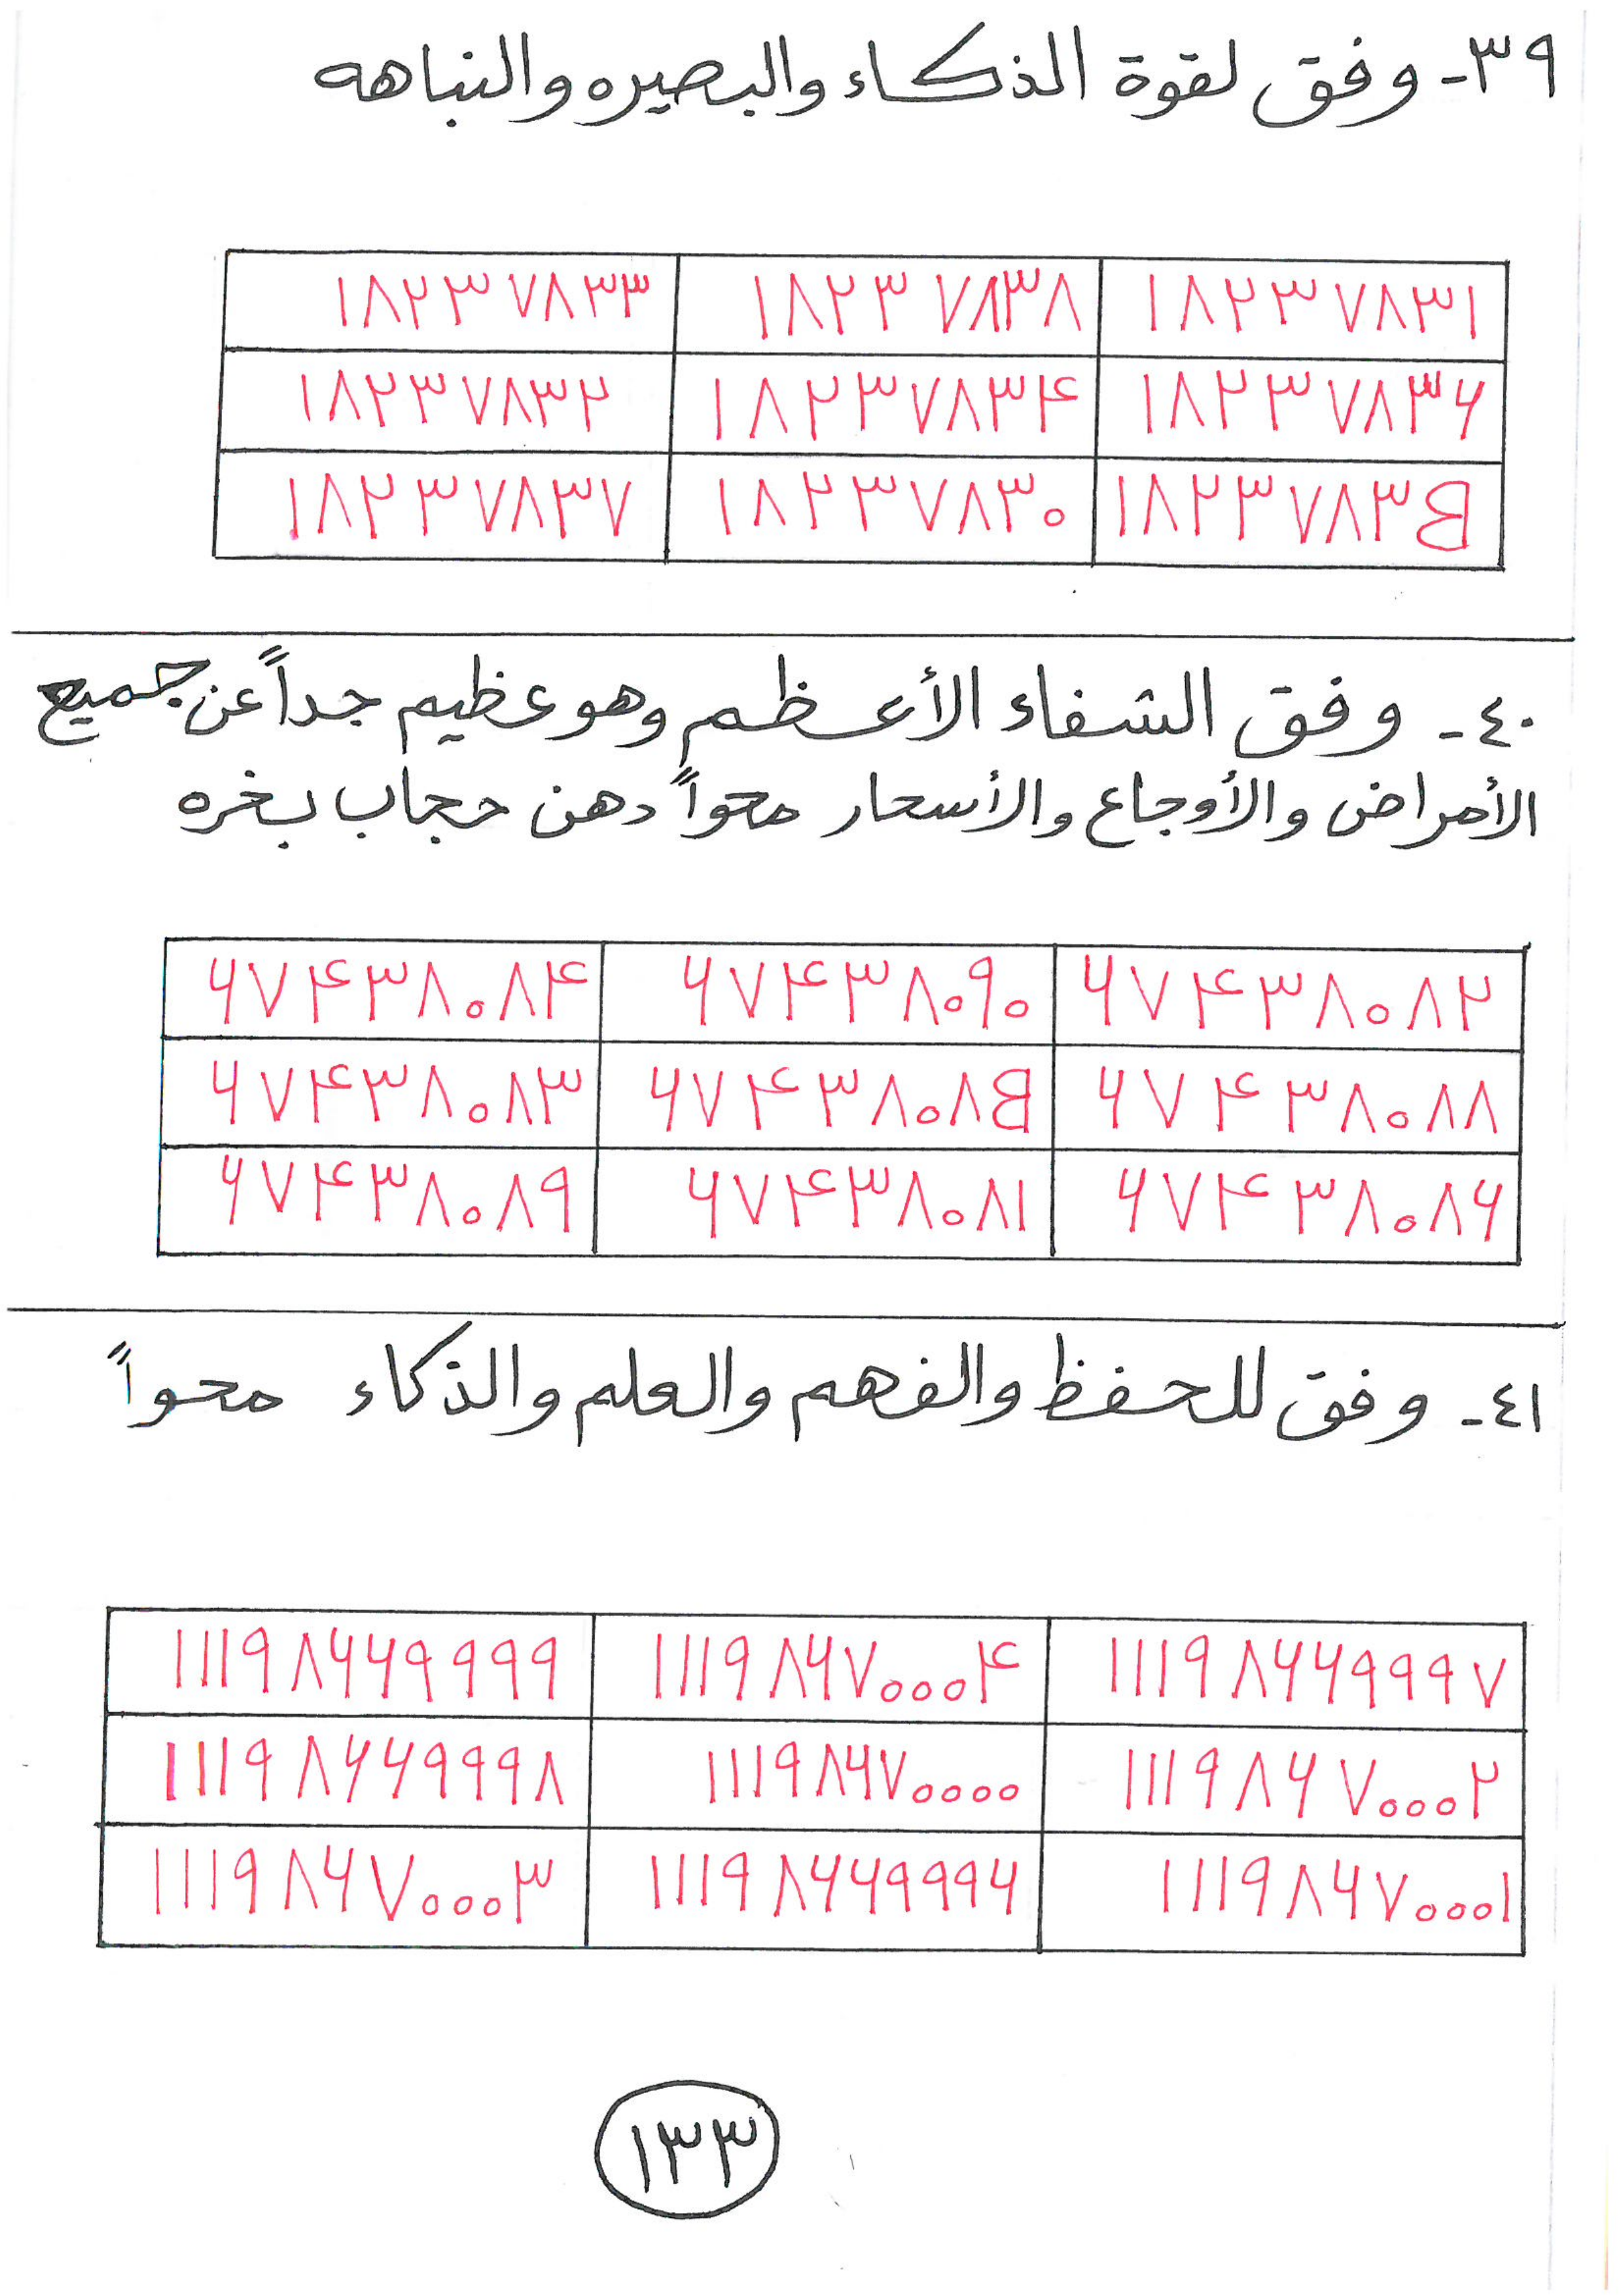 ٣٩- وفق لقوة الذكاء والبصيره والنباهه
١٨٢٣٧٨٣٣ ١٨٢٣٧٨٣٨ ١٨٢٣٧٨٣١
١٨٢٣٧٨٣٢ ١٨٢٣٧٨٣۴ ١٨٢٣٧٨٣٦
١٨٢٣٧٨٣٧ ١٨٢٣٧٨٣٠ ١٨٢٣٧٨٣B
٤٠- وفق الشفاء الأعظم وهو عظيم جداً عن جميع
الأمراض والأوجاع والأسحار محواً دهن حجاب بخره
٦٧۴٣٨٠٨۴ ٦٧۴٣٨٠٩٠ ٦٧۴٣٨٠٨٢
٦٧۴٣٨٠٨٣ ٦٧۴٣٨٠٨B ٦٧۴٣٨٠٨٨
٦٧۴٣٨٠٨٩ ٦٧۴٣٨٠٨١ ٦٧۴٣٨٠٨٦
٤١- وفق للحفظ والفهم والعلم والذكاء محواً
١١١٩٨٦٦٩٩٩٩ ١١١٩٨٦٧٠٠٠۴ ١١١٩٨٦٦٩٩٩٧
١١١٩٨٦٦٩٩٩٨ ١١١٩٨٦٧٠٠٠٠ ١١١٩٨٦٧٠٠٠٢
١١١٩٨٦٧٠٠٠٣ ١١١٩٨٦٦٩٩٩٦ ١١١٩٨٦٧٠٠٠١
١٣٣